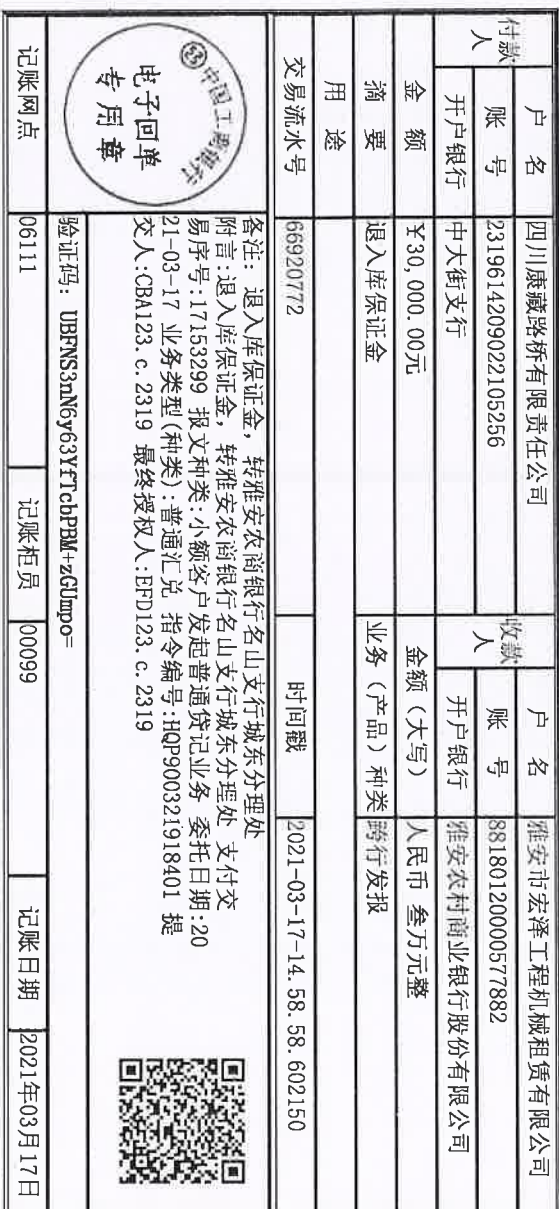 付款人 户名 四川康藏路桥有限责任公司 收款人 户名 雅安市宏泽工程机械租赁有限公司
账号 2319614209022105256 账号 88180120000577882
开户银行 中大街支行 开户银行 雅安农村商业银行股份有限公司
金额 ¥30,000.00元 金额（大写） 人民币 叁万元整
摘要 退入库保证金 业务（产品）种类 跨行发报
用途
交易流水号 66920772 时间戳 2021-03-17-14.58.58.602150
中国工商银行
电子回单
专用章
备注: 退入库保证金, 转雅安农商银行名山支行城东分理处
附言:退入库保证金, 转雅安农商银行名山支行城东分理处 支付交
易序号:17153299 报文种类:小额客户发起普通贷记业务 委托日期:20
21-03-17 业务类型(种类):普通汇兑 指令编号:HQP900321918401 提
交人:CBA123.c.2319 最终授权人:EFD123.c.2319
验证码: UBFNS3nN6y63YfTcbPBM+zGUmpo=
记账网点 06111 记账柜员 00099 记账日期 2021年03月17日